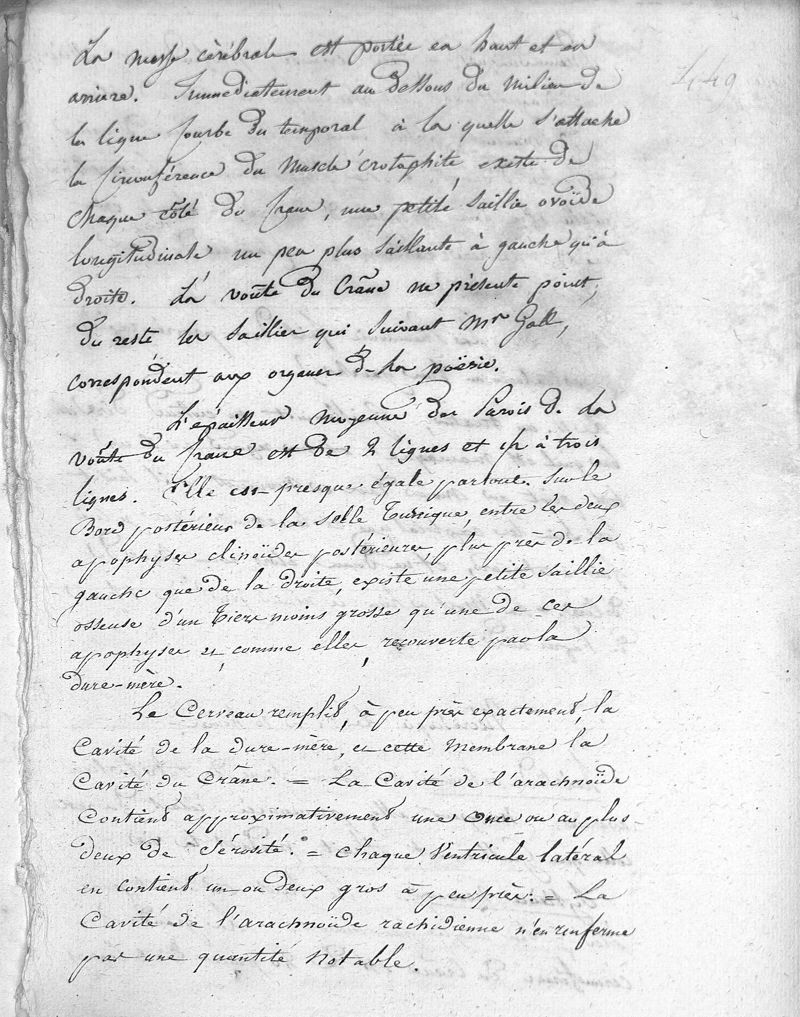 449
La masse cérébrale est portée en haut et en
arriere. Immediatement au dessous du milieu de
la ligne courbe du temporal à la quelle s'attache
la circonférence du muscle crotaphite existe de
chaque côté du crane, une petite saillie ovoïde
longitudinale un peu plus saillante à gauche qu'à
droite. La voûte du Crâne ne présente point,
du reste les saillies qui suivant Mr Gall,
correspondent aux organes de la poësie.
L'épaisseur moyenne des parois de la
voûte du crane est de 2 lignes et à trois
lignes. Elle est presque égale partout. Sur le
Bord postérieur de la selle Turcique, entre les deux
apophyses clinoïdes postérieures, plus près de la
gauche que de la droite, existe une petite saillie
osseuse d'un tiers moins grosse qu'une de ces
apophyses et comme elles, recouverte par la
dure-mère.
Le Cerveau remplit, à peu près exactement, la
Cavité de la dure-mère, et cette Membrane la
Cavité du Crâne. = La Cavité de l'arachnoïde
Contient approximativement une once ou au plus
deux de Sérosité. = Chaque Ventricule latéral
en contient un ou deux gros à peu près. = La
Cavité de l'arachnoïde rachidienne n'en renferme
pas une quantité notable.